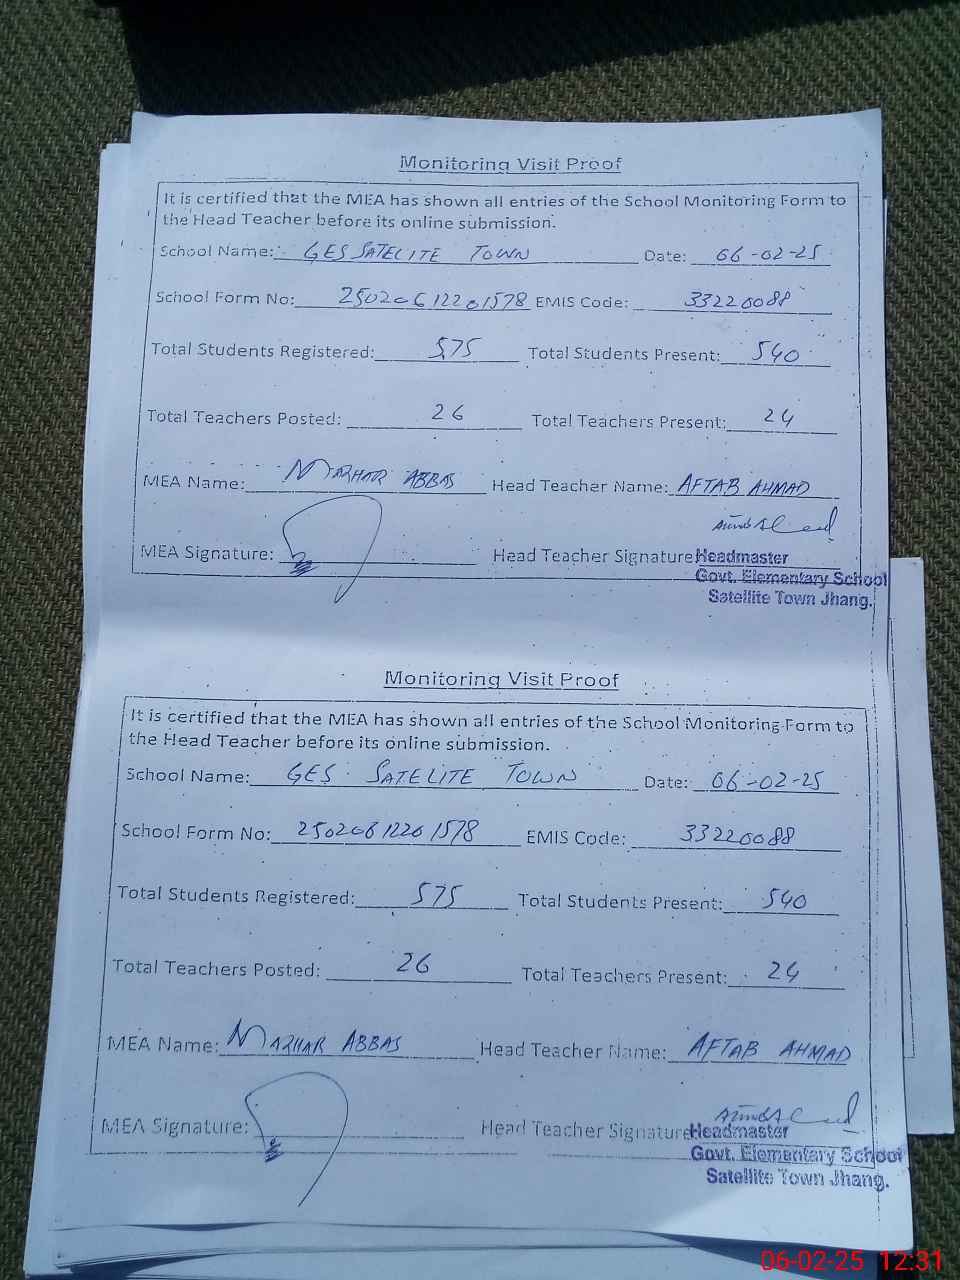 Monitoring Visit Proof
It is certified that the MEA has shown all entries of the School Monitoring Form to
the Head Teacher before its online submission.
School Name: GES SATELITE TOWN Date: 06-02-25
School Form No: 25020612201578 EMIS Code: 33220088
Total Students Registered: 575 Total Students Present: 540
Total Teachers Posted: 26 Total Teachers Present: 24
MEA Name: MAZHAR ABBAS Head Teacher Name: AFTAB AHMAD
MEA Signature: Head Teacher Signature Headmaster
Govt. Elementary School
Satellite Town Jhang.
Monitoring Visit Proof
It is certified that the MEA has shown all entries of the School Monitoring Form to
the Head Teacher before its online submission.
School Name: GES SATELITE TOWN Date: 06-02-25
School Form No: 25020612201578 EMIS Code: 33220088
Total Students Registered: 575 Total Students Present: 540
Total Teachers Posted: 26 Total Teachers Present: 24
MEA Name: MAZHAR ABBAS Head Teacher Name: AFTAB AHMAD
MEA Signature: Head Teacher Signature Headmaster
Govt. Elementary School
Satellite Town Jhang.
06-02-25 12:31